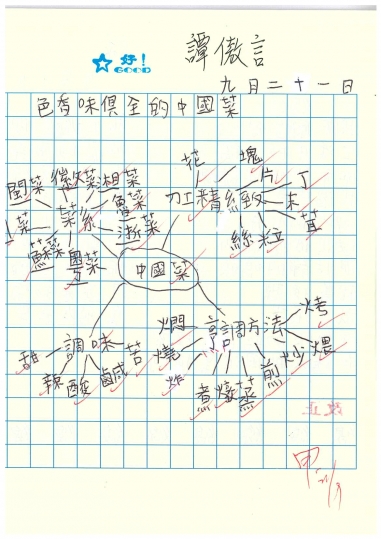 好！
GOOD
譚傲言
九月二十一日
色香味俱全的中國菜
閩菜 徽菜 湘菜
魯菜
菜系
浙菜
蘇菜 粵菜
花 塊
片 丁
刀工精緻 末
茸
絲 粒
中國菜
甜 調味 苦
辣 酸 鹹
燜 烹調方法 烤
燒 煨
炸 炒
煮 燉 蒸 煎
改正
甲